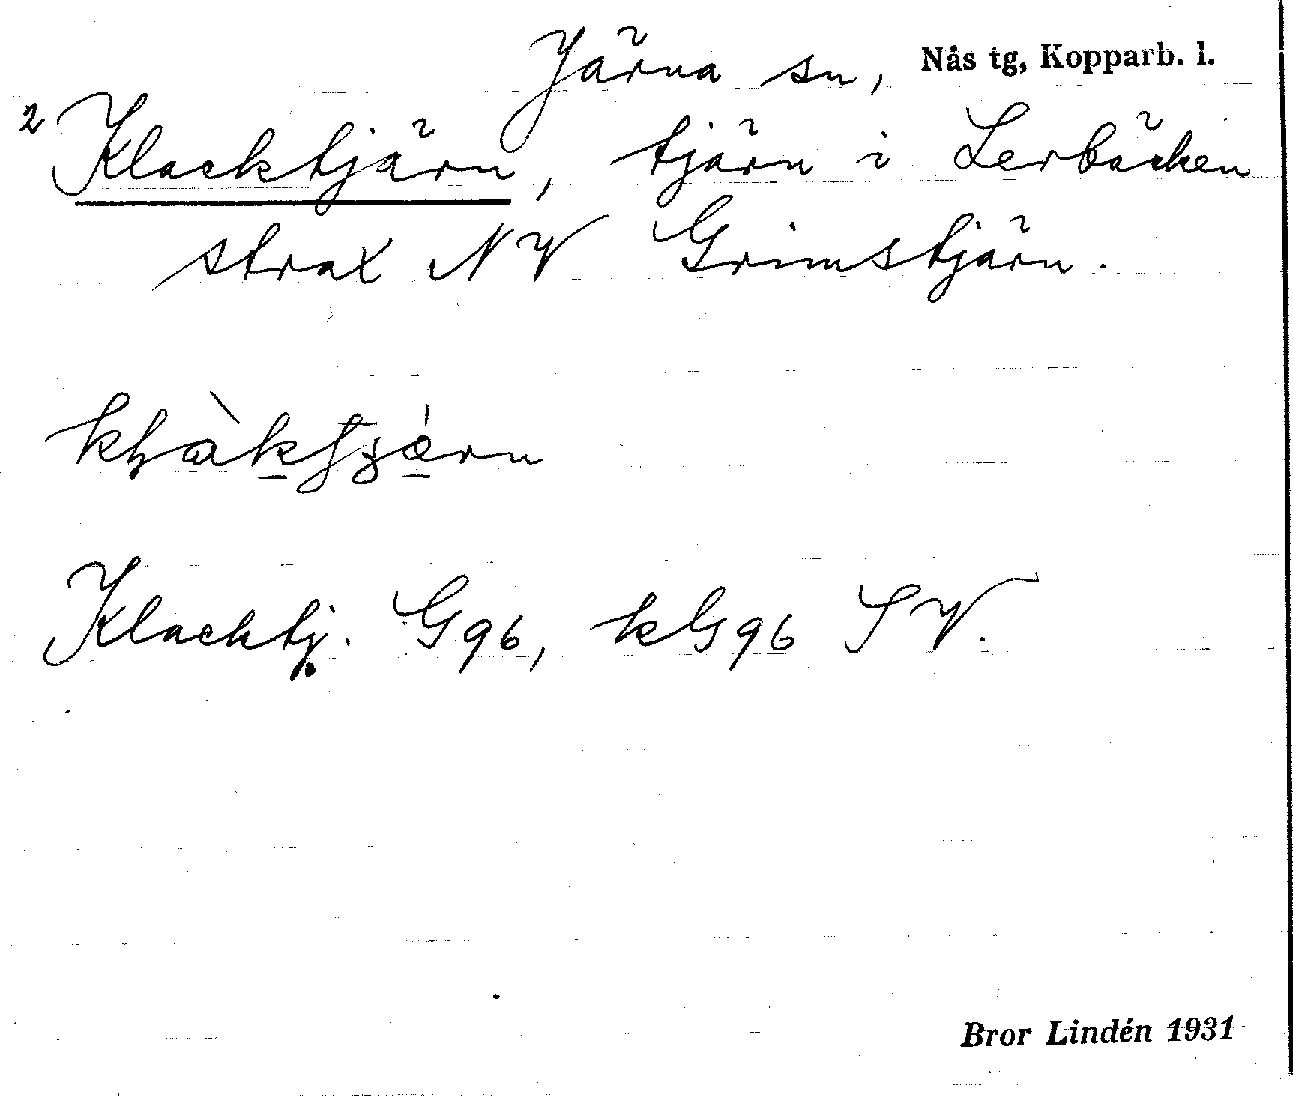 Järna sn, Nås tg, Kopparb. l.
2 Klacktjärn, tjärn i Lerbäcken
strax NV Grimstjärn.
Klacktj. G96, kG96 SV.
Bror Lindén 1931